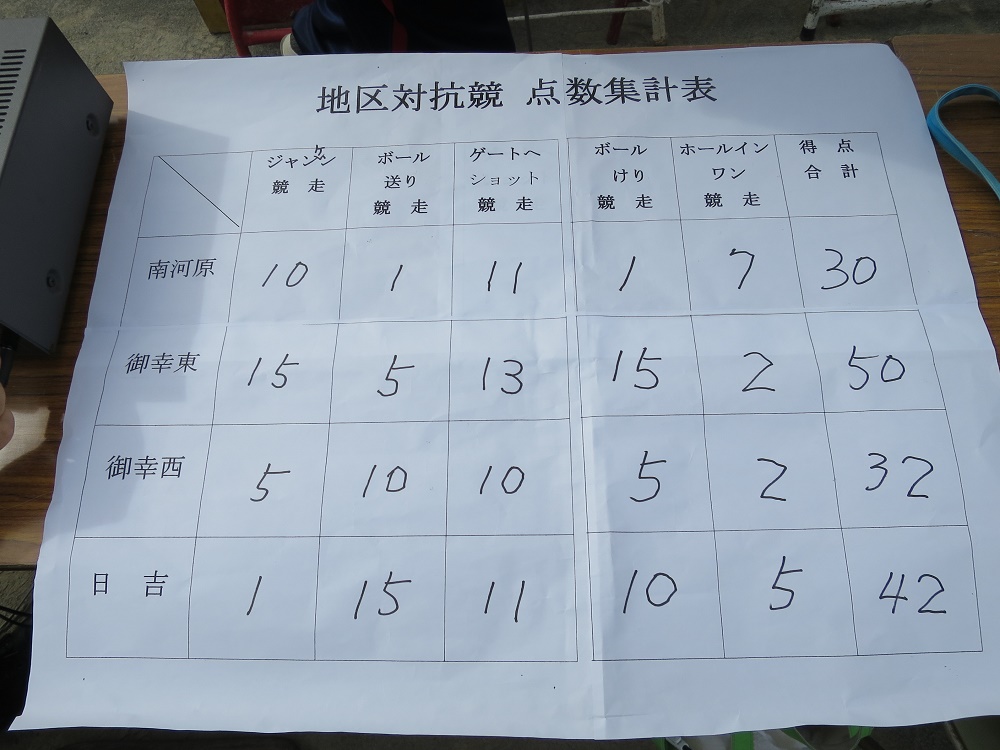 地区対抗競 点数集計表
ジャンケン 競走
ボール送り 競走
ゲートへショット 競走
ボールけり 競走
ホールインワン 競走
得点合計
南河原 10 1 11 1 7 30
御幸東 15 5 13 15 2 50
御幸西 5 10 10 5 2 32
日吉 1 15 11 10 5 42